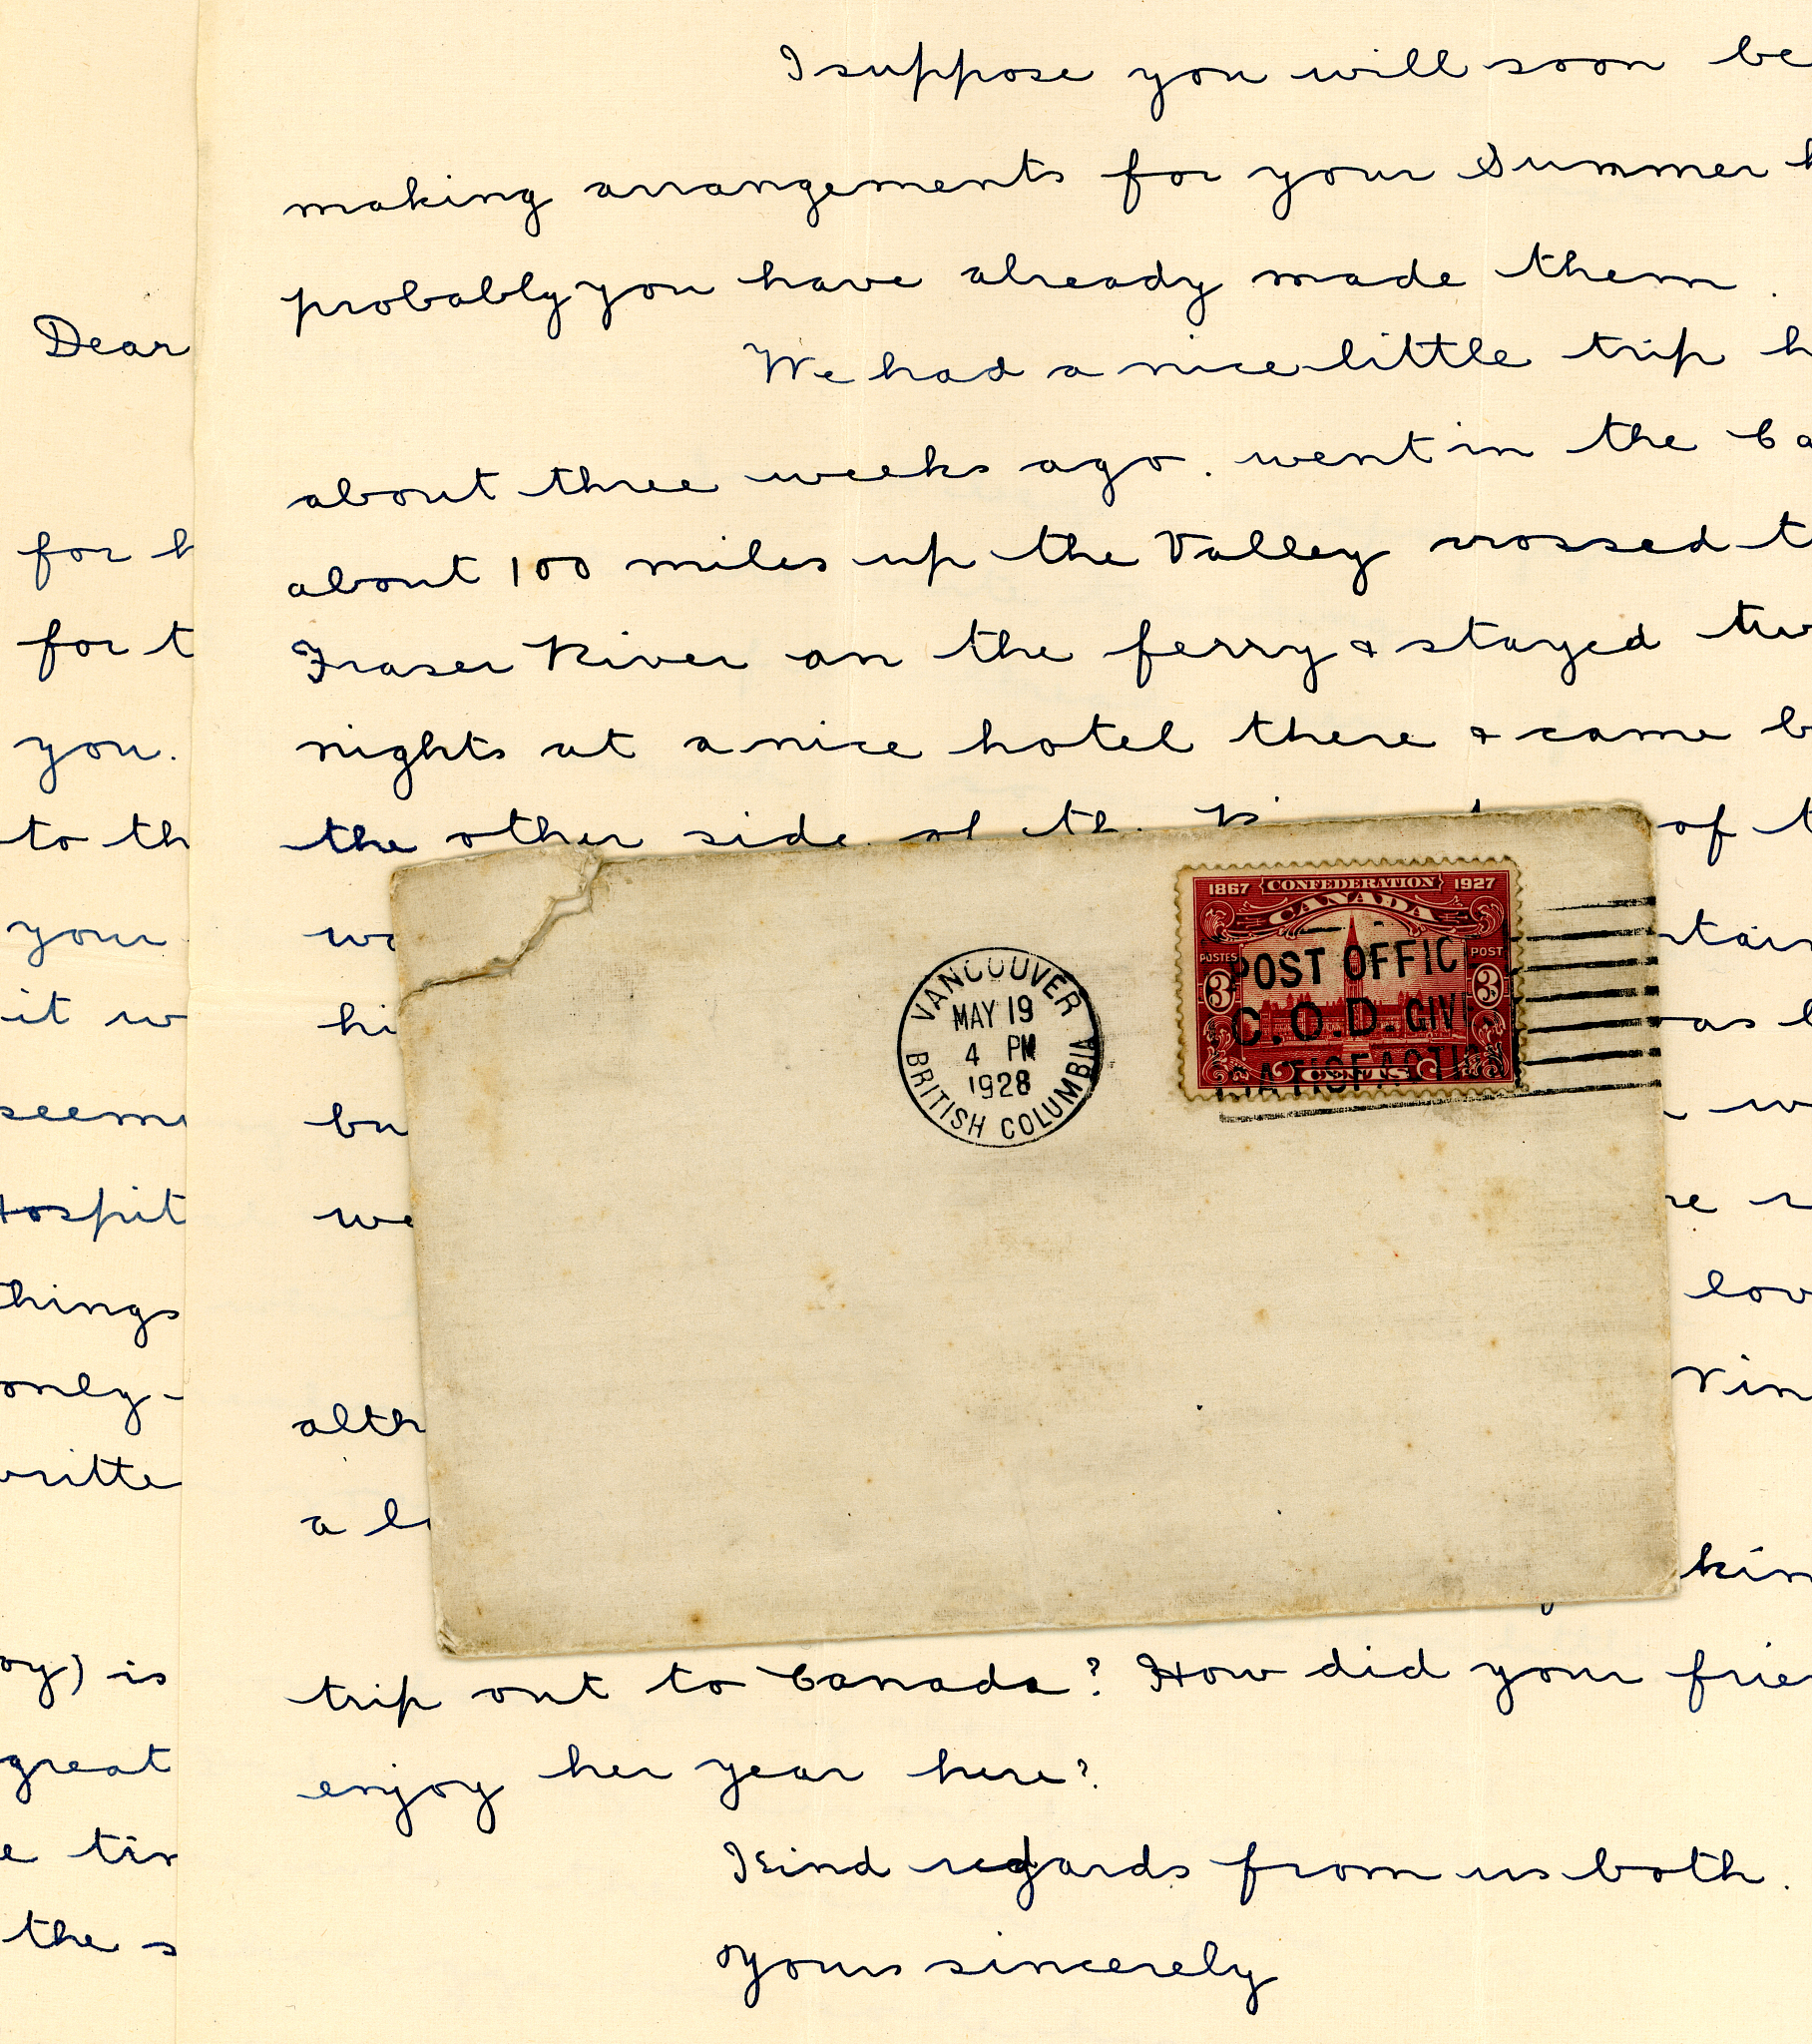 Dear
for h
for t
you.
to th
your
it w
seems
Hospit
things
only -
writte
oy) is
great
e tim
the s
I suppose you will soon be
making arrangements for your Summer h
probably you have already made them .
We had a nice little trip h
about three weeks ago . went in the Ca
about 100 miles up the Valley crossed t
Fraser River on the ferry & stayed tw
nights at a nice hotel there & came b
the other side of the of t
wa ntain
hi as b
bu w
we re r
lov
alth Vin
a l
kin
trip out to Canada? How did your frie
enjoy her year here?
Kind regards from us both .
Yours sincerely
VANCOUVER
MAY 19
4 PM
1928
BRITISH COLUMBIA
1867 CONFEDERATION 1927
CANADA
POSTES POST
3 3
CENTS
POST OFFIC
C.O.D. GIV
SATISFACTION